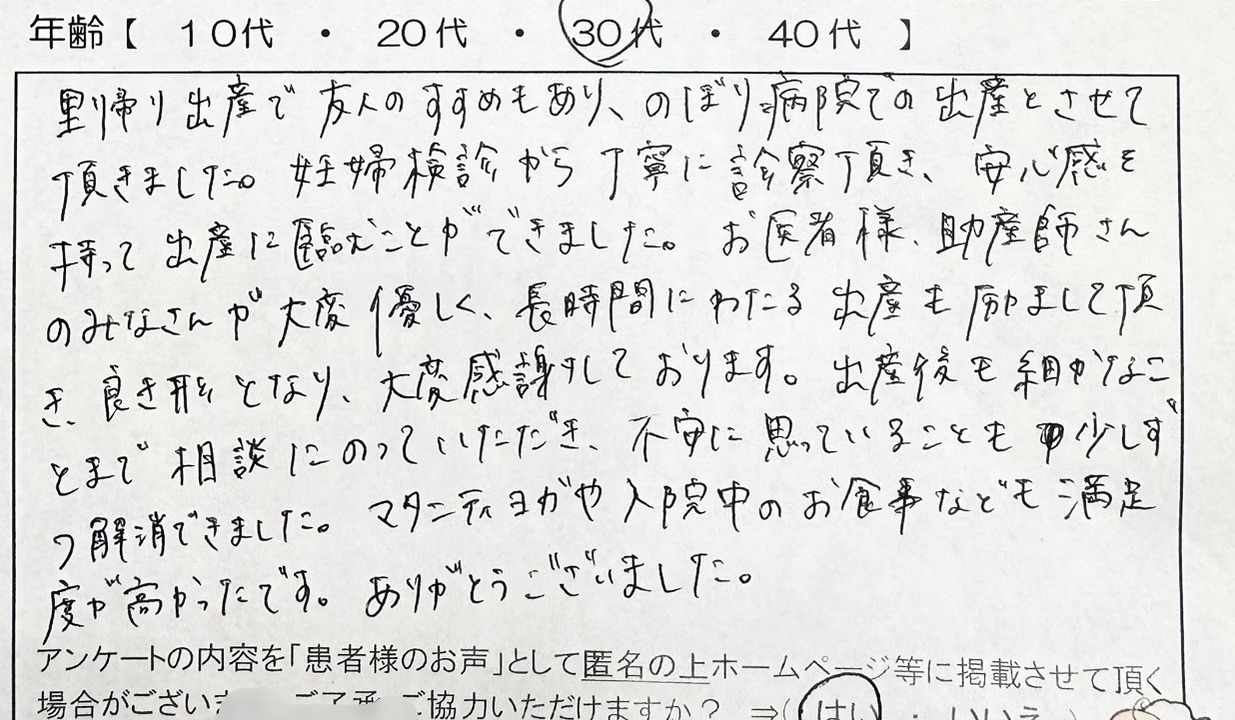 年齢【 10代 ・ 20代 ・ 30代 ・ 40代 】
里帰り出産で友人のすすめもあり、のぼり病院での出産とさせて
頂きました。妊婦検診から丁寧に診察頂き、安心感を
持って出産に臨むことができました。お医者様、助産師さん
のみなさんが大変優しく、長時間にわたる出産も励まして頂
き、良き形となり、大変感謝しております。出産後も細かなこ
とまで相談にのっていただき、不安に思っていることも少しず
つ解消できました。マタニティヨガや入院中のお食事なども満足
度が高かったです。ありがとうございました。
アンケートの内容を「患者様のお声」として匿名の上ホームページ等に掲載させて頂く
場合がございま ご了承 ご協力いただけますか？ ⇒（ はい ・ いいえ ）